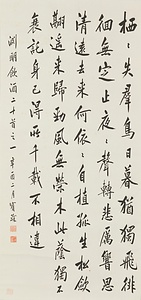 栖〻失群鳥日暮猶獨飛徘
徊無定止夜〻聲轉悲厲響思
清遠去來何依〻自植孤生松斂
翮遥來歸勁風無榮木此蔭獨不
衰託身已得所千載不相違
淵明飲酒二十首之一 辛酉二月